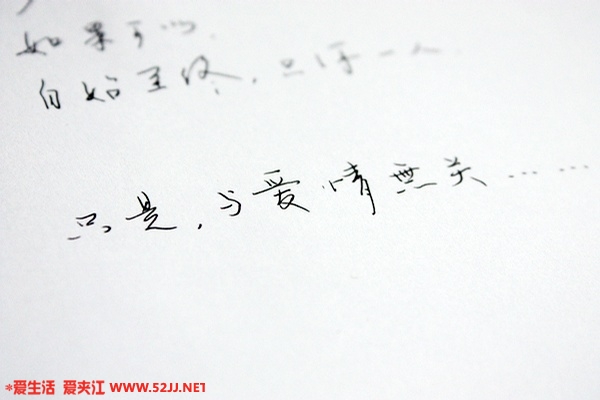 如果可以
自始至终，只一人
只是，与爱情無关……
*爱生活 爱夹江 WWW.52JJ.NET